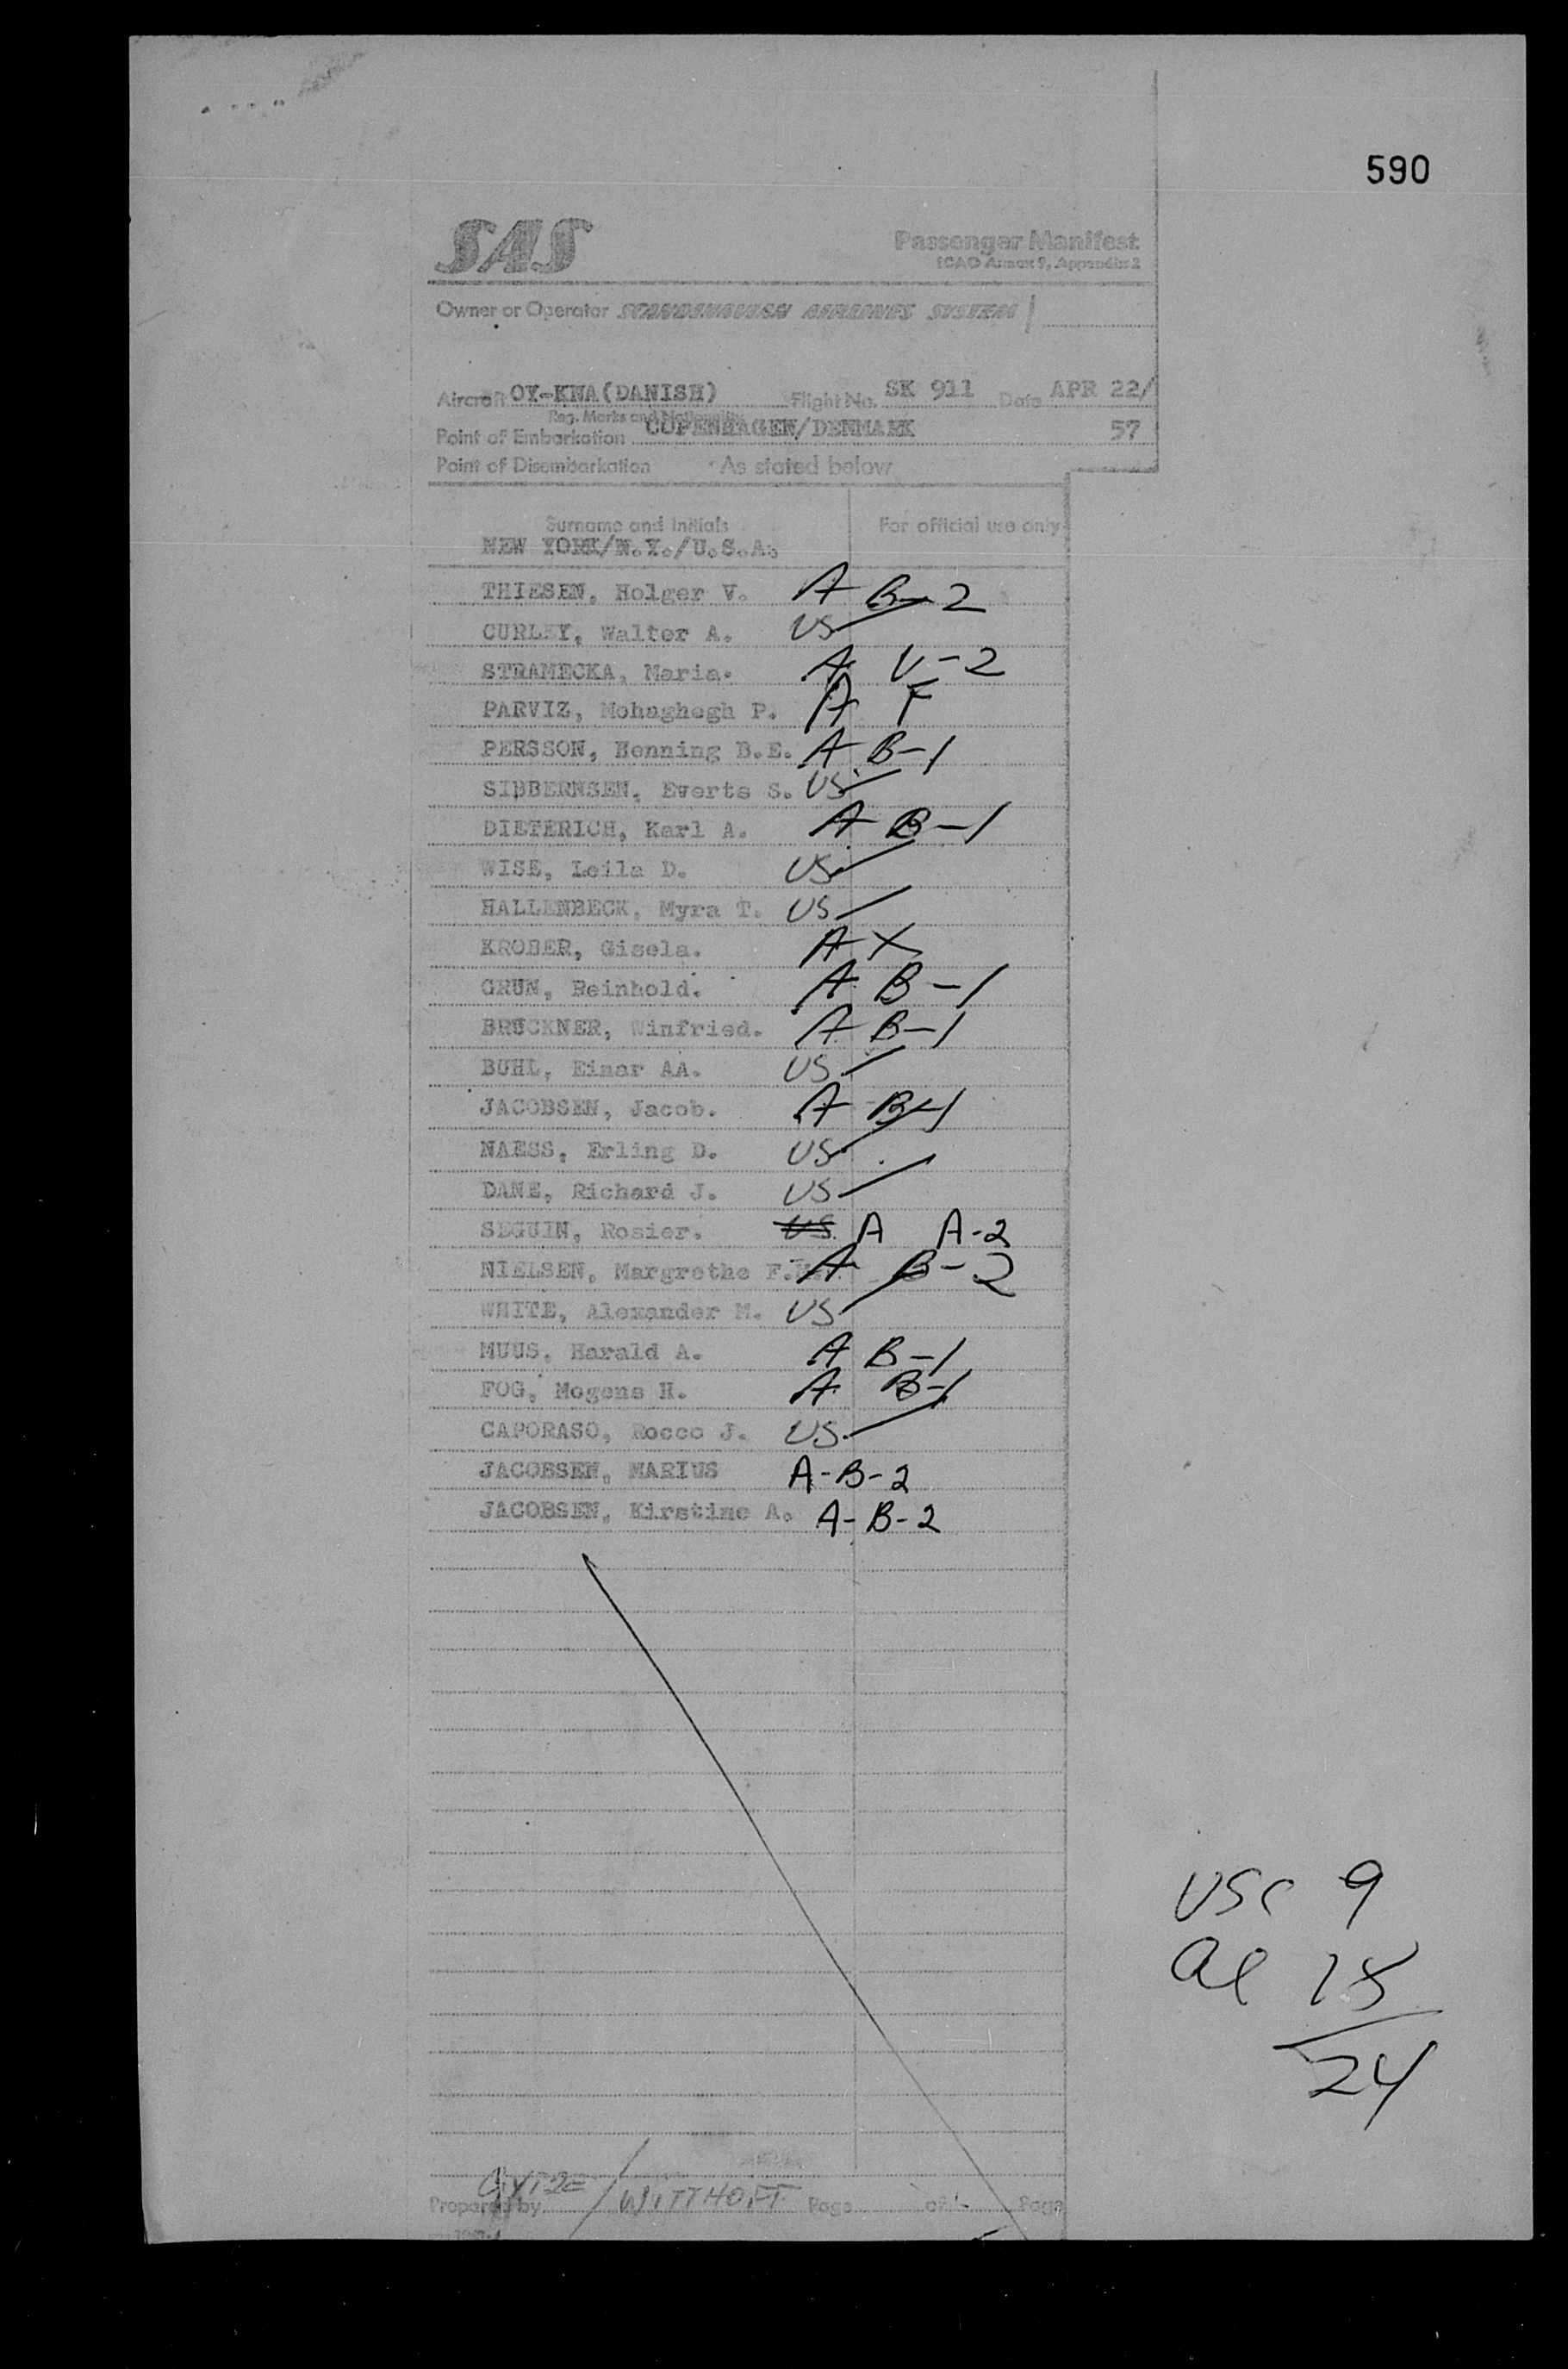 590
SAS
Passenger Manifest
ICAO Annex 9, Appendix 2
Owner or Operator SCANDINAVIAN AIRLINES SYSTEM
Aircraft OY-KNA(DANISH) Flight No. SK 911 Date APR 22/
Reg. Marks and Nationality
Point of Embarkation COPENHAGEN/DENMARK 57
Point of Disembarkation As stated below
Surname and Initials For official use only
NEW YORK/N.Y./U.S.A.
THIESEN, Holger V. A B-2
CURLEY, Walter A. US
STRAMECKA, Maria. A V-2
PARVIZ, Mohaghegh P. A F
PERSSON, Henning B.E. A B-1
SIBBERNSEN, Everts S. US
DIETERICH, Karl A. A B-1
WISE, Leila D. US
HALLENBECK, Myra T. US
KROBER, Gisela. A X
GRUN, Reinhold. A B-1
BRUCKNER, Winfried. A B-1
BUHL, Einar AA. US
JACOBSEN, Jacob. A B-1
NAESS, Erling D. US
DANE, Richard J. US
SEGUIN, Rosier. US A A-2
NIELSEN, Margrethe F. A B-2
WHITE, Alexander M. US
MUUS, Harald A. A B-1
FOG, Mogens H. A B-1
CAPORASO, Rocco J. US
JACOBSEN, MARIUS A-B-2
JACOBSEN, Kirstine A. A-B-2
USC 9
al 15
24
Prepared by / WITTHOFT Page of Page